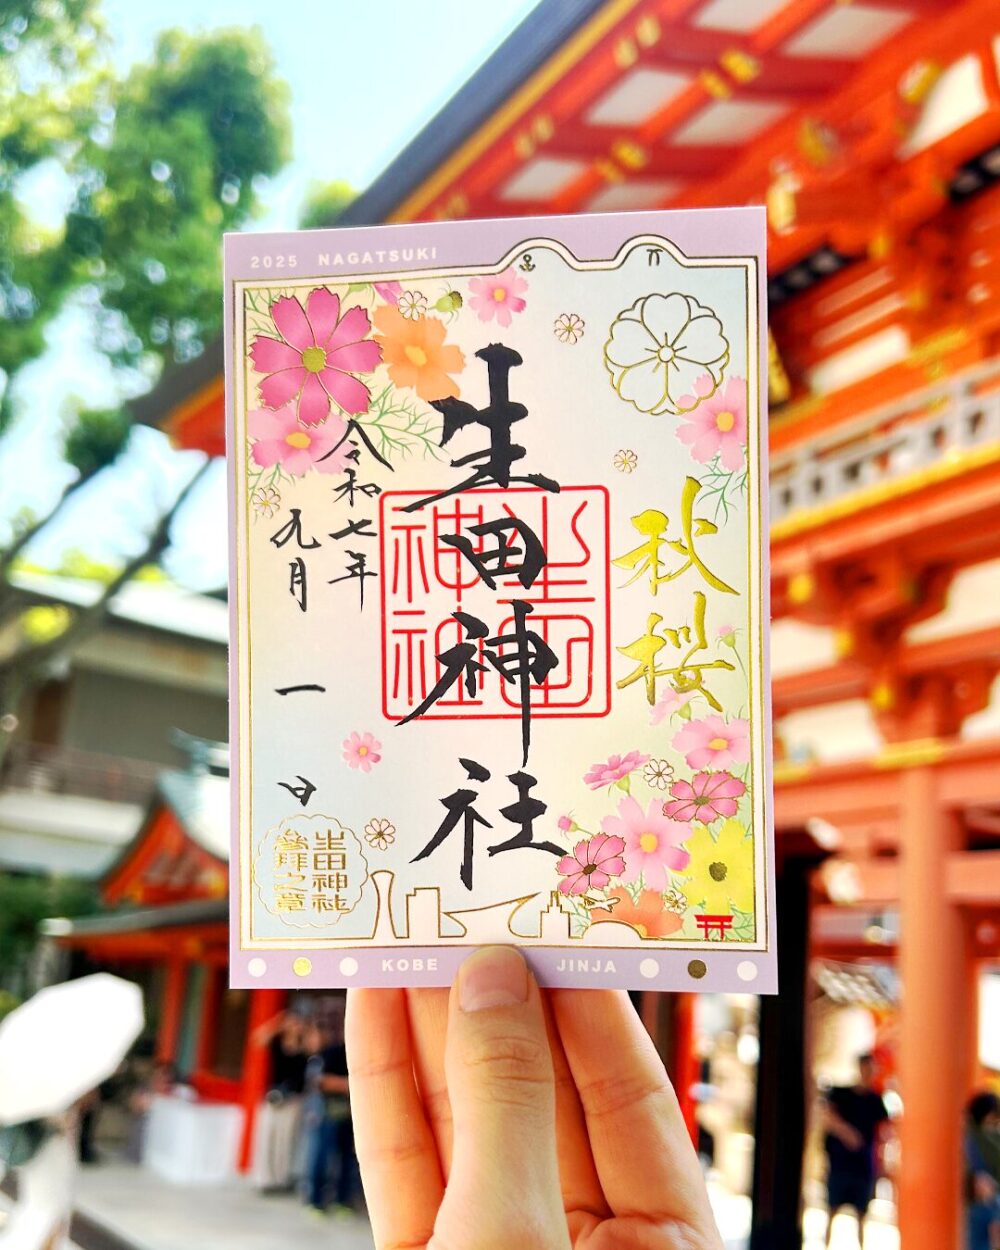 2025 NAGATSUKI
秋桜
生田神社
生田神社
令和七年
九月一日
生田神社
參拜之章
KOBE JINJA